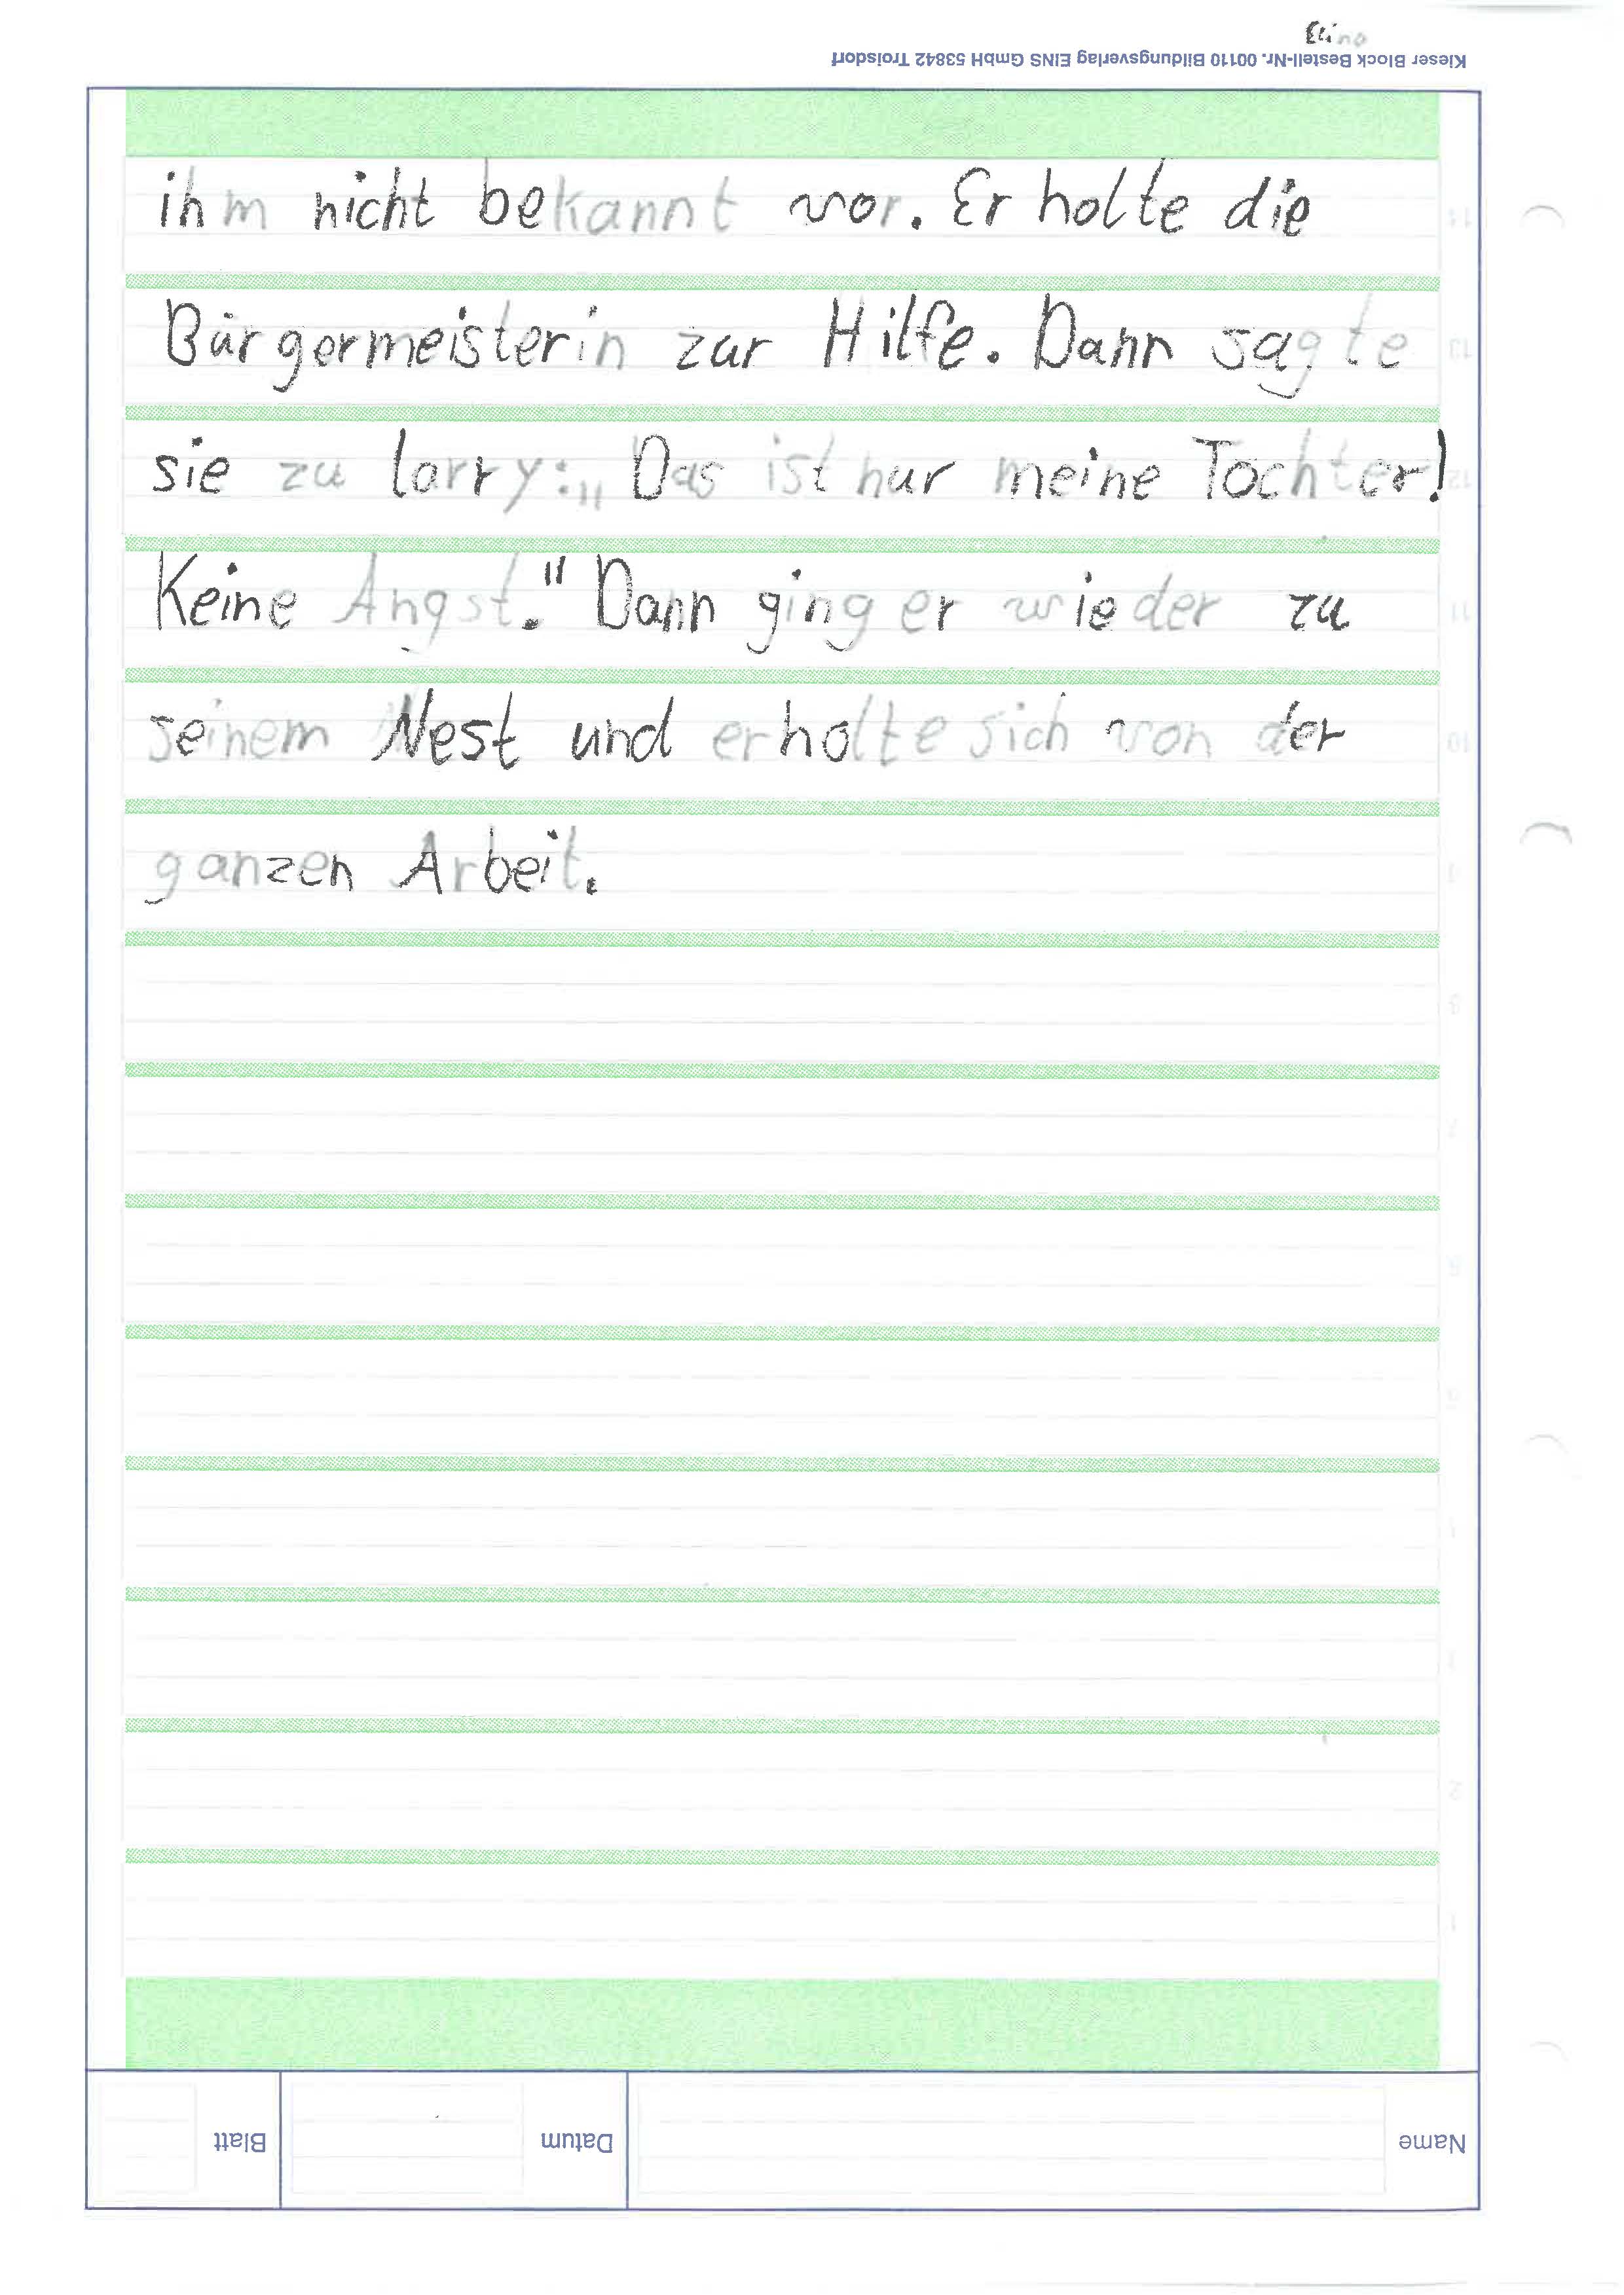 Elina
Kieser Block Bestell-Nr. 00110 Bildungsverlag EINS GmbH 53842 Troisdorf
ihm nicht bekannt vor. Er holte die
Bürgermeisterin zur Hilfe. Dann sagte
sie zu larry: „Das ist nur meine Tochter!
Keine Angst." Dann ging er wieder zu
seinem Nest und erholte sich von der
ganzen Arbeit.
Blatt Datum Name